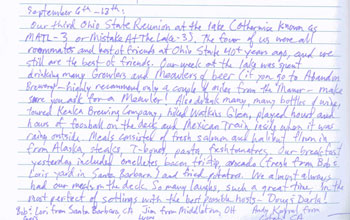 September 6th - 13th:
Our third Ohio State Reunion at the lake (otherwise known as
MATL-3 or Mistake At The Lake-3). The four of us were all
roommates and best of friends at Ohio State 40+ years ago, and we
still are the best of friends. Our week at the lake was spent
drinking many Growlers and Meowlers of beer (if you go to Abandon
Brewing - highly recommend only a couple of miles from the Manor - make
sure you ask for a Meowler! Also drank many, many bottles of wine,
toured Keuka Brewing Company, hiked Watkins Glen, played hours and
hours of football on the deck and Mexican Train inside when it was
raining outside. Meals consisted of fresh salmon and halibut flown in
from Alaska, steaks, T-bones, pasta, fresh tomatoes. Our breakfast
yesterday included omelettes, bacon, avocado (fresh from Bob &
Lori's yard in Santa Barbara) and fried potatoes. We almost always
had our meals on the deck. So many laughs, such a great time. In the
most perfect of settings with the best possible hosts - Doug & Darla!
Bob & Lori from Santa Barbara, CA Jim from Middleton, OH Andy from